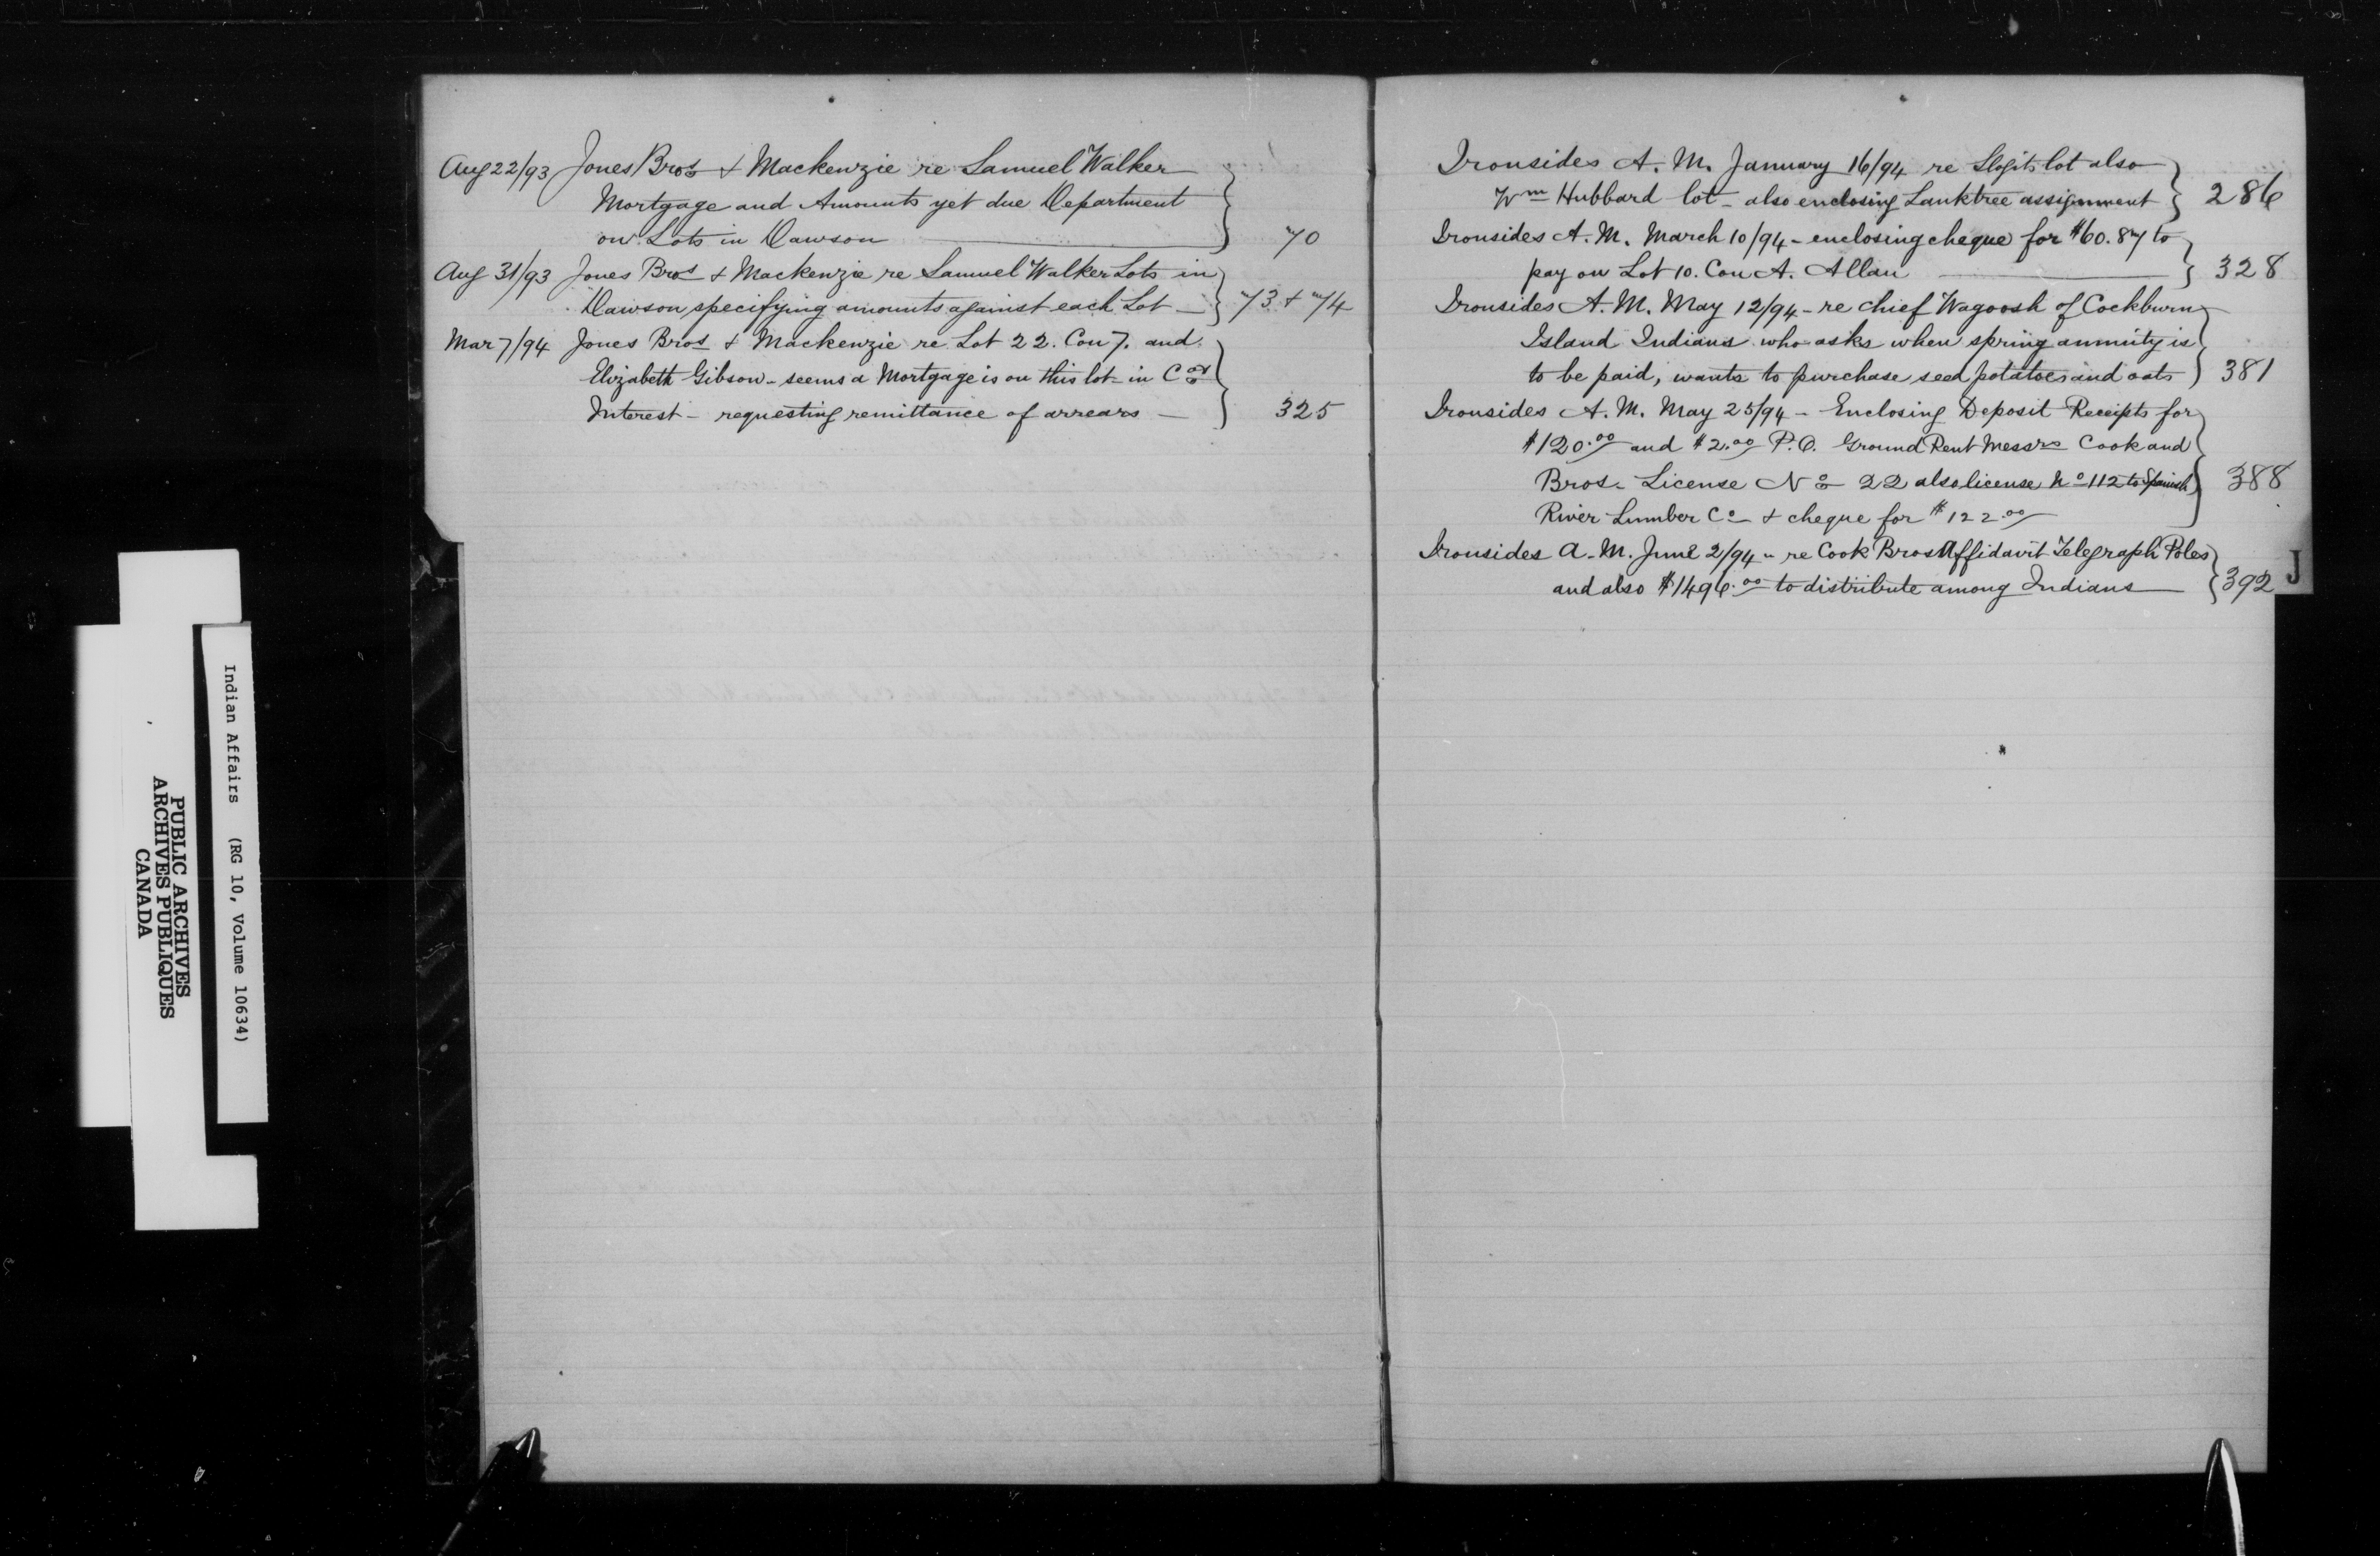 Aug 22/93 Jones Bros & Mackenzie re Samuel Walker
Mortgage and Amounts yet due Department
on Lots in Dawson 70
Aug 31/93 Jones Bros & Mackenzie re Samuel Walker Lots in
Dawson, specifying amounts against each Lot 73 & 74
Mar 7/94 Jones Bros & Mackenzie re Lot 22. Con 7. and
Elizabeth Gibson - seems a Mortgage is on this lot - in Cos
Interest - requesting remittance of arrears - 325
Ironsides A. M. January 16/94 re lot also
Wm Hubbard lot - also enclosing Lanktree assignment 286
Ironsides A. M. March 10/94 - enclosing cheque for $60.87 to
pay on Lot 10. Con A. Allan 328
Ironsides A. M. May 12/94 - re chief Wagoosh of Cockburn
Island Indians who asks when spring annuity is
to be paid, wants to purchase seed potatoes and oats 381
Ironsides A. M. May 25/94 - Enclosing Deposit Receipts for
$120.00 and $2.00 P.O. Ground Rent Messrs Cook and
Bros. License No 22 also license No 112 to Spanish 388
River Lumber Co & cheque for $122.00
Ironsides A. M. June 2/94 - re Cook Bros Affidavit Telegraph Poles
and also $1496.00 to distribute among Indians 392
J
Indian Affairs (RG 10, Volume 10634)
PUBLIC ARCHIVES
ARCHIVES PUBLIQUES
CANADA